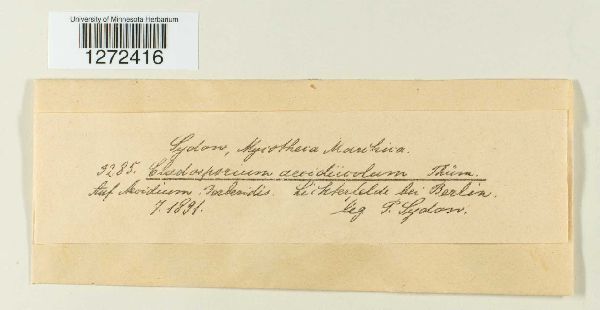 University of Minnesota Herbarium
1272416
Sydow, Mycotheca Marchica.
3285. Cladosporium aecidiicolum Thüm.
Auf Aecidium Lichterfelde bei Berlin.
7.1891. leg P. Sydow.